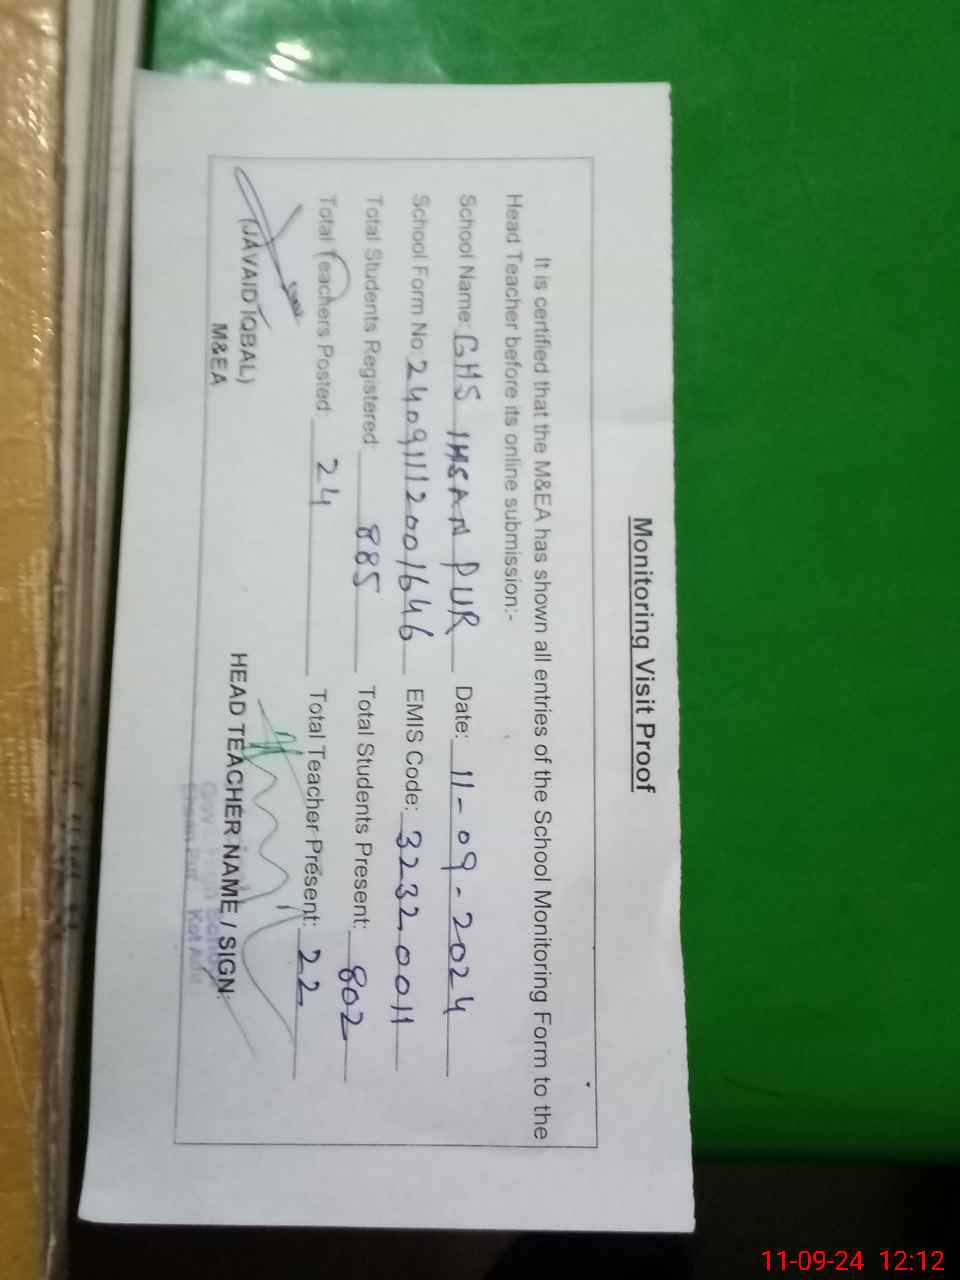 Monitoring Visit Proof
It is certified that the M&EA has shown all entries of the School Monitoring Form to the
Head Teacher before its online submission:-
School Name: GHS IHSAN PUR Date: 11-09-2024
School Form No: 24091112001646 EMIS Code: 32320011
Total Students Registered: 885 Total Students Present: 802
Total Teachers Posted: 24 Total Teacher Present: 22
(JAVAID IQBAL) HEAD TEACHER NAME / SIGN:
M&EA
Kot Adu
11-09-24 12:12